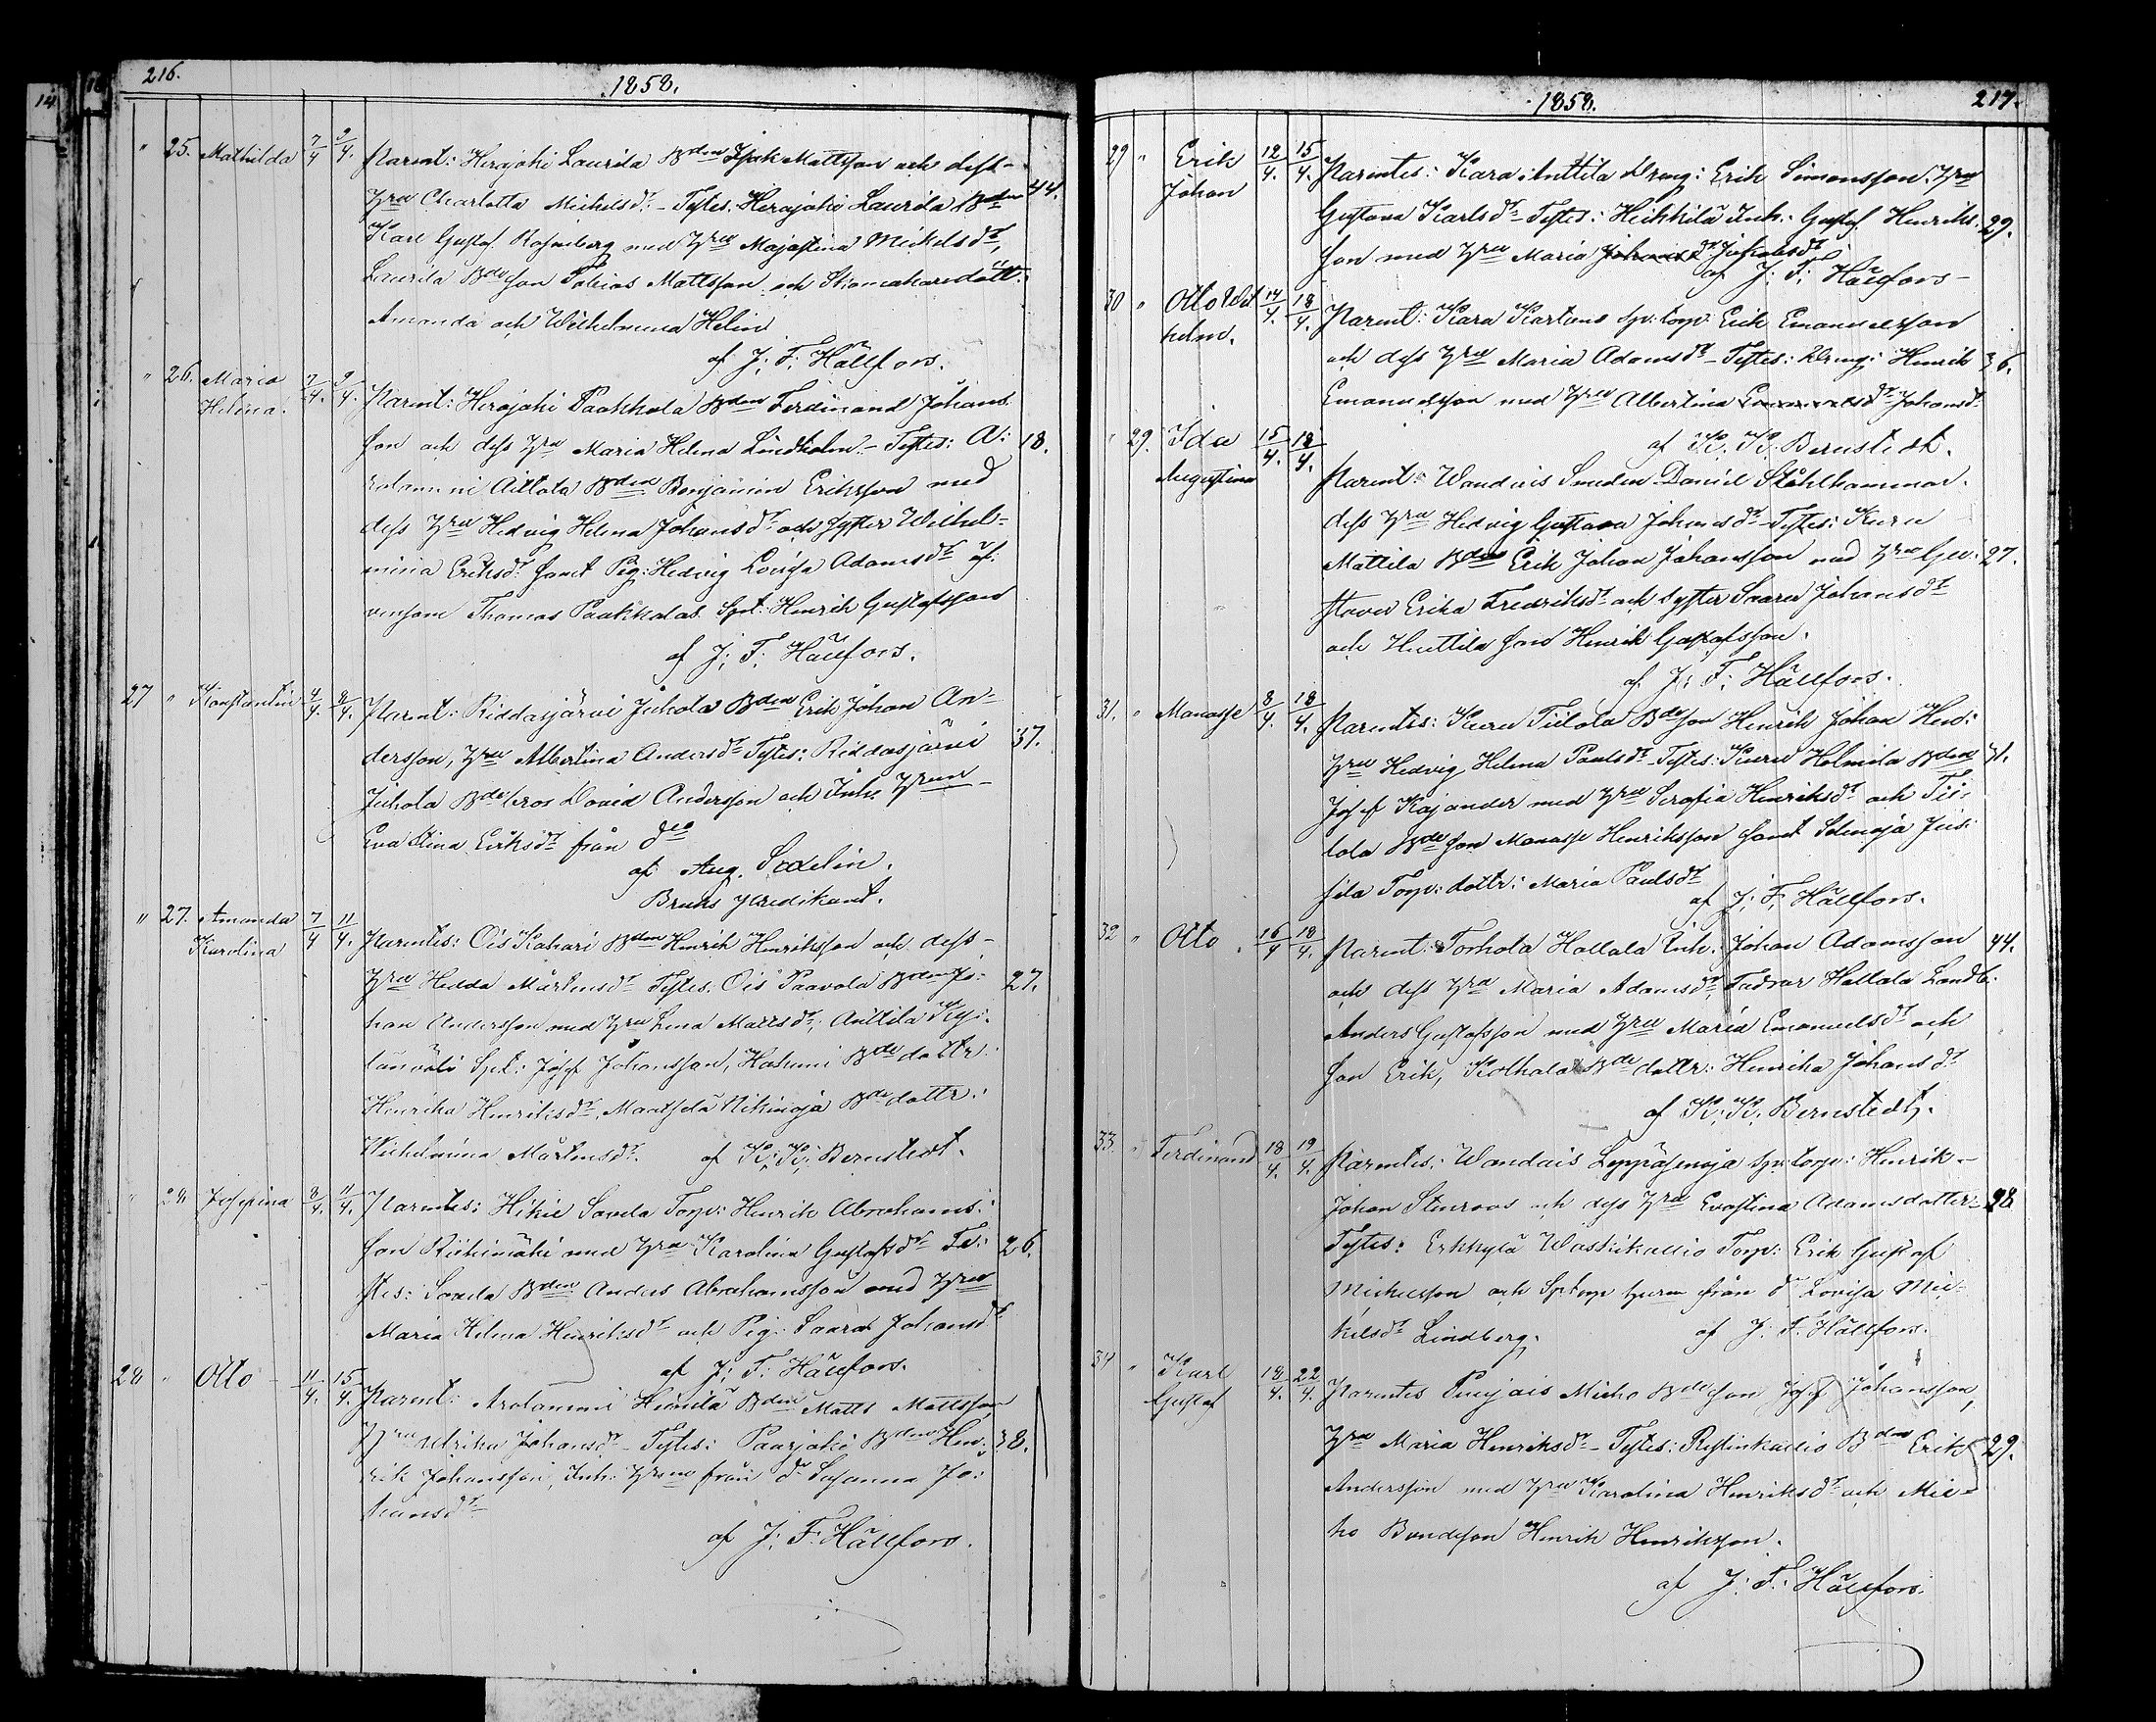 216.
1858.
" 25. Mathilda 7/4 9/4. Parent: Hirajoki Laurila Bden Isak Mattsson och dess
Hru Charlotta Michelsdr. Testes: Hirajoki Laurila Bden 44.
Karl Gustaf Rosenberg med Hru Majastina Mickelsdr,
Laurila Bdeson Tobias Mattsson och
Amanda och Wilhelmina Helin
af J: F: Hällfors.
" 26. Maria 7/4. 9/4. Parent: Hirajoki Paakkola Bden Ferdinand Johans
Helena.
son och dess Hru Maria Helena Lindholm. Testes: A: 18.
rolammi Aittola Bden Benjamin Eriksson med
dess Hru Hedvig Helena Johansdr och Syster Wilhel=
mina Eriksdr samt Pig: Hedvig Lovisa Adamsdr
Thomas Paakkola Henrik Gustafsson
af J: F: Hällfors.
27 " Konstantin 4/4. 8/4. Parent: Riddasjärvi Juhola Bden Erik Johan An=
dersson, Hru Albertina Andersdr Testes: Riddasjärvi 37.
Juhola Bde bror David Andersson och Inh: Hrun
Eva Stina Eriksdr från do
af Aug. Sadelin.
Bruks predikant.
" 27. Amanda 7/4 11/4. Parentes: Ois Kahari Bden Henrik Henriksson och dess
Karolina
Hru Hedda Mårtensdr Testes: Ois Paavola Bden Jo= 27.
han Andersson med Hru Lena Mattsdr, Anttila
Josef Johansson, Hakumi Bde dottr:
Henrika Henriksdr, Bde dottr:
Wilhelmina Mårtensdr. af K: K: Bernstedt.
" 28 Josepina 8/4. 11/4. Parentes: Hikie Savela Torp: Henrik Abrahams:
son Riihimäki med Hru Karolina Gustafsdr Te: 26.
stes: Savela Bden Anders Abrahamsson med Hru
Maria Helena Henriksdr och Pig: Saara Johansdr
af J: F: Hällfors.
28 " Otto 11/4. 15/4. Parent: Arolammi Heinilä Bden Matts Mattsson
Hru Ulrika Johansdr Testes: Paarjoki Bden Hen: 38.
rik Johansson, Inh: Hrun från do Susanna Jo:
hansdr
af J: F: Hällfors.
1858.
217.
29 " Erik 12/4. 15/4. Parentes: Kara Anttila Dreng: Erik Simonsson. Hru
Johan
Gustava Karlsdr Testes: Heikkilä Inh: Gustaf Henriks. 29.
son med Hru Maria Jakobsdr
af J: F: Hällfors
30 " Otto Wil 14/4. 18/4. Parent: Kara Kartano Sp: torp: Erik Emanuelsson
helm.
och dess Hru Maria Adamsdr Testes: Dreng: Henrik 36.
Emanuelsson med Hru Albertina Emanuelsdr Johansdr
af K: K: Bernstedt.
" 29. Ida 15/4. 18/4. Parent: Wandais Smeden Daniel Stålhammar.
Augustina
dess Hru Hedvig Gustava Johansdr Testes: Kuru
Mattila Bden Erik Johan Johansson med Hru Gu: 27.
stava Erika Fredriksdr och Syster Saara Johansdr
och Huttila son Henrik Gustafsson.
af J: F: Hällfors.
31. " Manasse 8/4. 18/4. Parentes: Kuru Tiilola Bdeson Henrik Johan Hen:
Hru Hedvig Helena Paulsdr Testes: Kuru Holmila Bden 41.
Josef Kajander med Hru Serafia Henriksdr och Tii-
lola Bde son Manasse Henriksson samt
sila Torp: dottr: Maria Paulsdr
af J: F: Hällfors.
32 " Otto. 16/4 18/4. Parent: Torhola Hallala Inh: Johan Adamsson 44.
och dess Hru Maria Adamsdr, Fadrar Hallala Landb:
Anders Gustafsson med Hru Maria Emanuelsdr och
son Erik, Bde dottr: Henrika Johansdr
af K: K: Bernstedt.
33. " Ferdinand 18/4. 19/4. Parentes: Wandais Leppäsenoja Sp: torp: Henrik
Johan Stenroos och dess Hru Evastina Adamsdotter 28
Testes: Erkkylä Waskikallio Torp: Erik Gustaf
Mickelsson och Sp:torp från do Lovisa Mic-
kelsdr Lindberg. af J: F: Hällfors.
34 " Karl 18/4. 22/4. Parentes Punjais Micko Bde son Josef Johansson,
Gustaf
Hru Maria Henriksdr Testes: Ristinkallio Bden Erik 29.
Andersson med Hru Karolina Henriksdr och Mic-
ko Bondeson Henrik Henriksson.
af J: F: Hällfors.